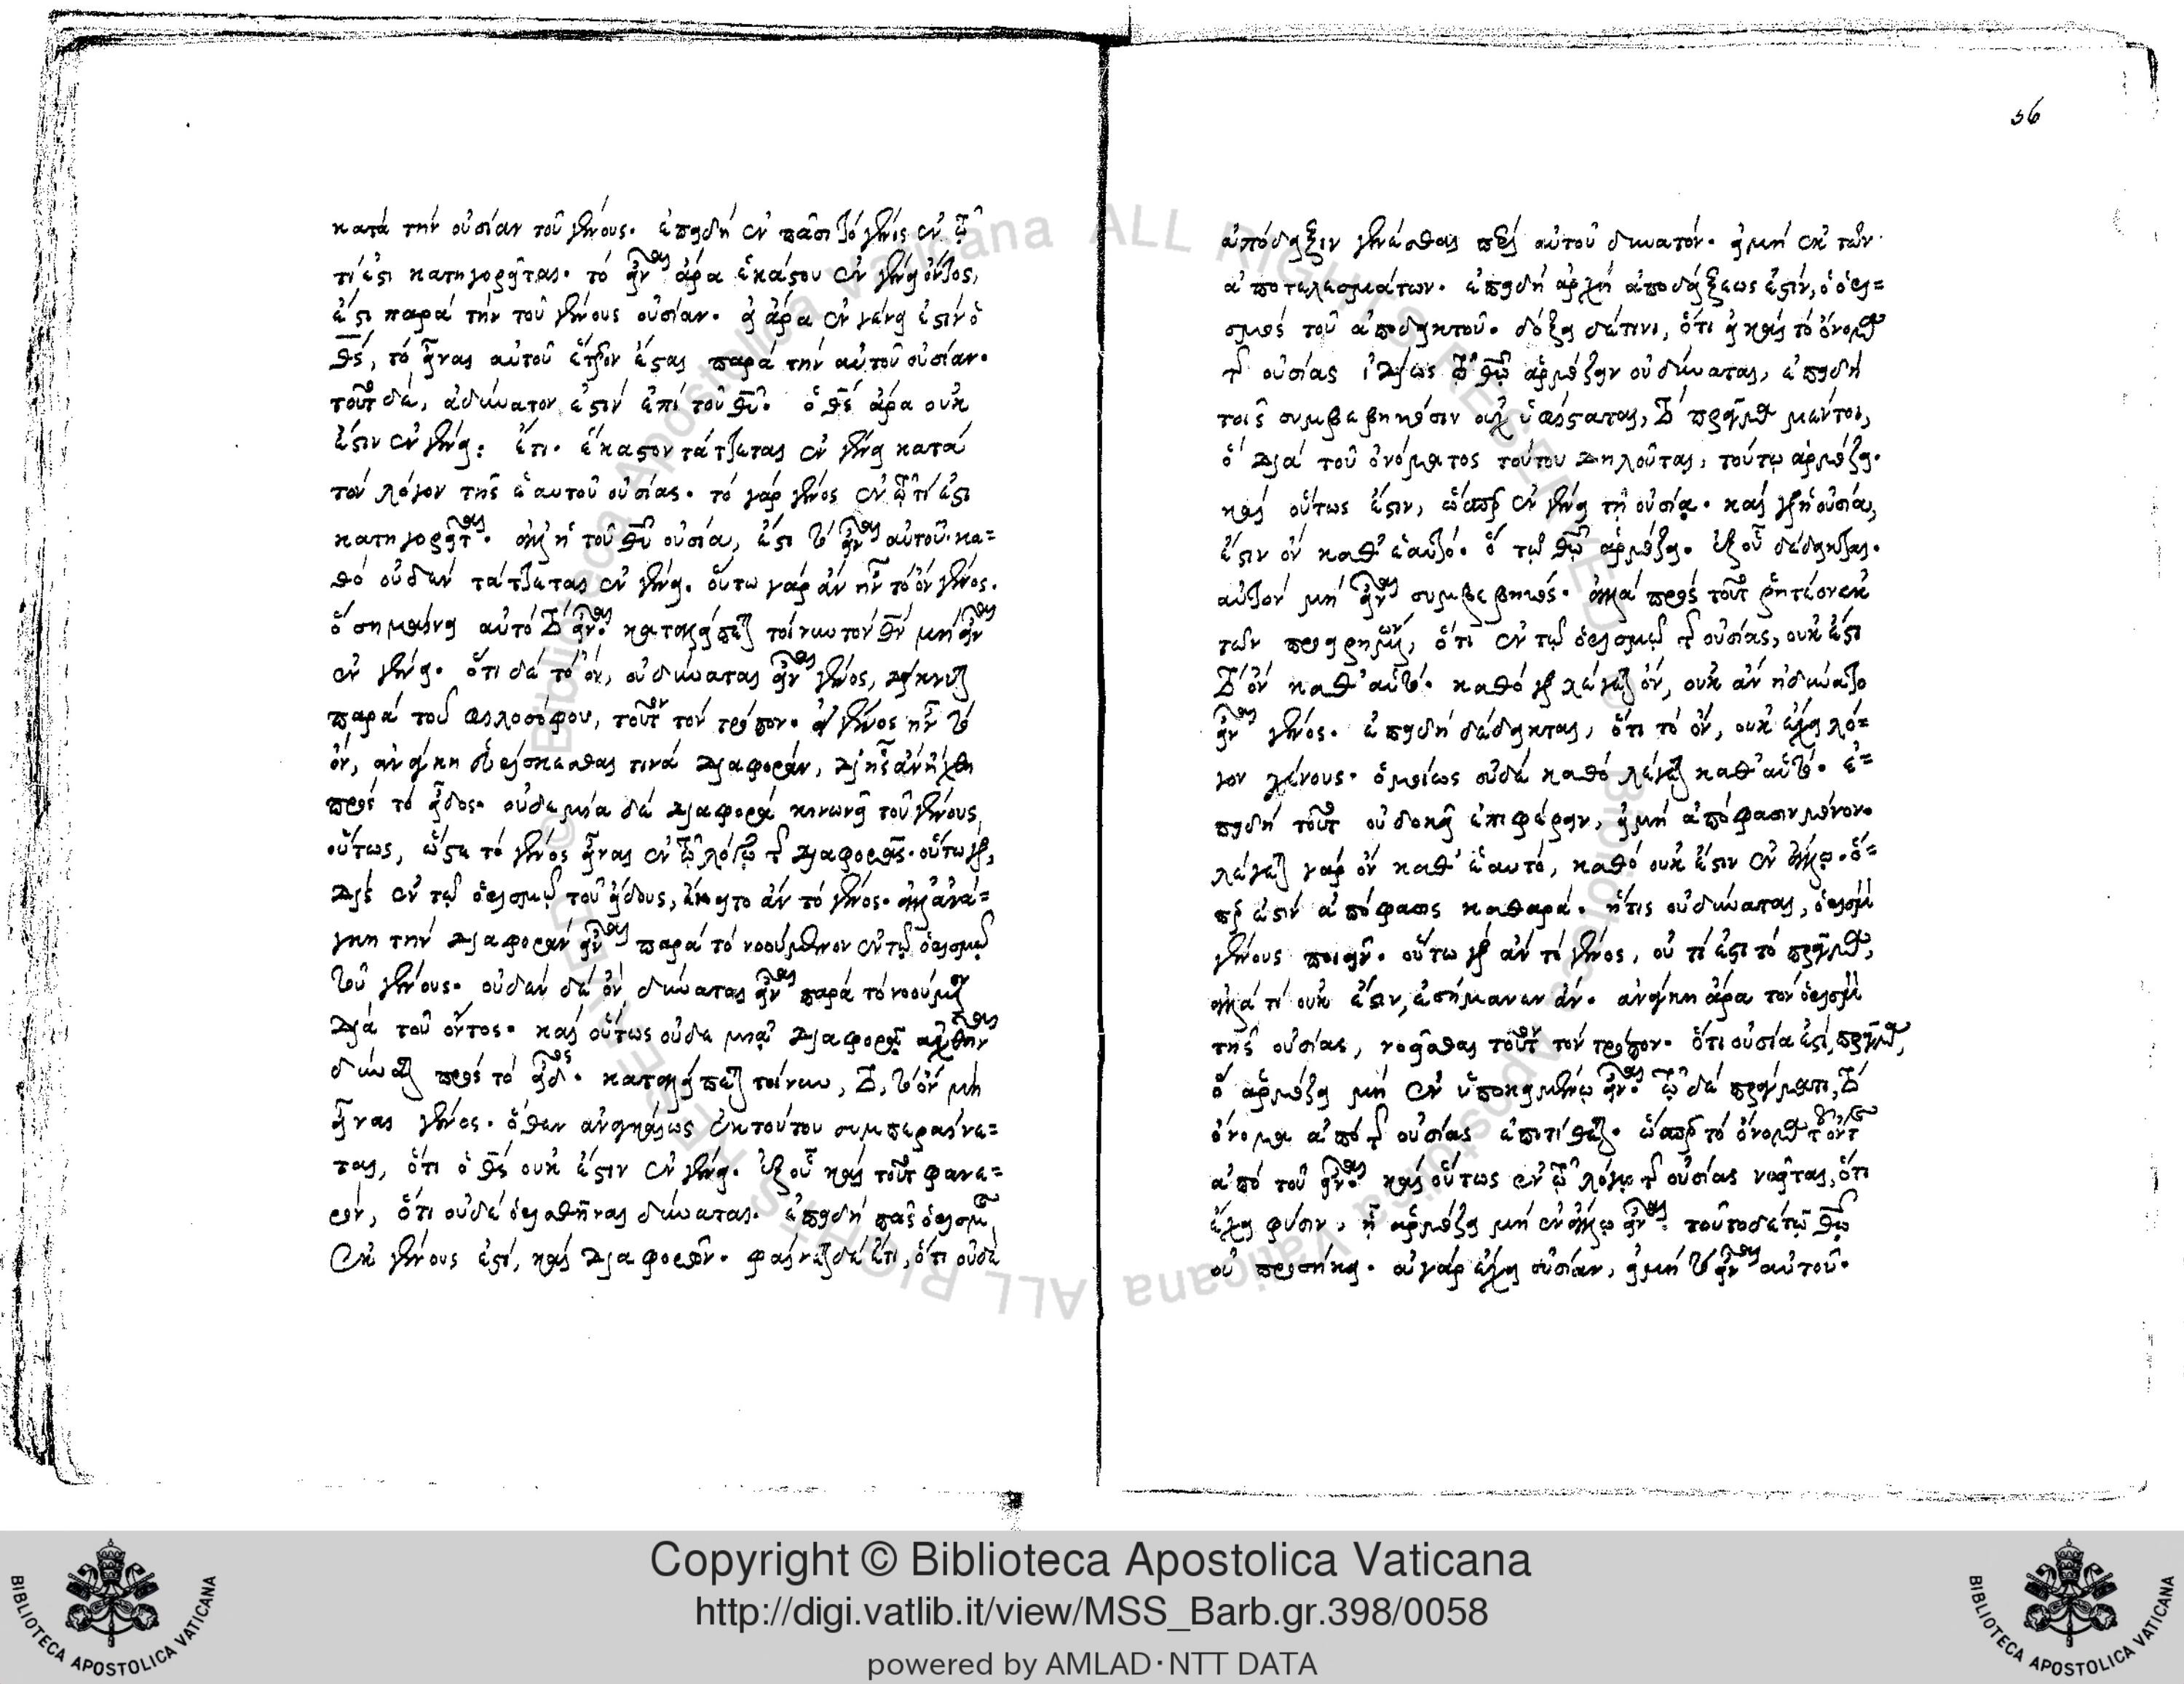 κατὰ τὴν οὐσίαν τοῦ γένους. ἐπειδὴ ἐν πᾶσι τὸ γένος ἐν τῷ
τί ἐστι κατηγορεῖται. τὸ εἶναι ἄρα ἑκάστου ἐν γένει ὄντος,
ἔστι παρὰ τὴν τοῦ γένους οὐσίαν. εἰ ἄρα ἐν γένει ἐστὶν ὁ
θς, τὸ εἶναι αὐτοῦ ἕτερον ἔσται παρὰ τὴν αὐτοῦ οὐσίαν.
τοῦτο δὲ, ἀδύνατον ἐστὶν ἐπὶ τοῦ θυ. ὁ θς ἄρα οὐκ
ἔστιν ἐν γένει. ἔτι. ἕκαστον τάττεται ἐν γένει κατὰ
τὸν λόγον τῆς ἑαυτοῦ οὐσίας. τὸ γὰρ γένος ἐν τῷ τί ἐστι
κατηγορεῖται. ἀλλ' ἡ τοῦ θυ οὐσία, ἔστι τὸ εἶναι αὐτοῦ. κα=
θὸ οὐδὲν τάττεται ἐν γένει. οὕτω γὰρ ἂν ἦν τὸ ὂν γένος.
ὃ σημαίνει αὐτὸ τὸ εἶναι. καταλείπεται τοίνυν τὸν θν μὴ εἶναι
ἐν γένει. ὅτι δὲ τὸ ὂν, οὐ δύναται εἶναι γένος, δείκνυται
παρὰ τοῦ φιλοσόφου, τοῦτον τὸν τρόπον. εἰ γένος ἦν τὸ
ὂν, ἀνάγκη εὑρίσκεσθαι τινὰ διαφορὰν, δι' ἧς ἀνήχθη
πρὸς τὸ εἶδος. οὐδεμία δὲ διαφορὰ κοινωνεῖ τοῦ γένους
οὕτως, ὥστε τὸ γένος εἶναι ἐν τῷ λόγῳ τῆς διαφορᾶς. οὕτω γὰρ,
δὶς ἐν τῷ ὁρισμῷ τοῦ εἴδους, ἔκειτο ἂν τὸ γένος. ἀλλ' ἀνά=
γκη τὴν διαφορὰν εἶναι παρὰ τὸ νοούμενον ἐν τῷ ὁρισμῷ
τοῦ γένους. οὐδὲν δὲ ὂν δύναται εἶναι παρὰ τὸ νοούμενον
διὰ τοῦ ὄντος. καὶ οὕτως οὐδεμιᾷ διαφορᾷ ἀχθῆναι
δύναται πρὸς τὸ εἶδος. καταλείπεται τοίνυν, τὸ, τὸ ὂν μὴ
εἶναι γένος. ὅθεν ἀναγκαίως ἐκ τούτου συμπεραίνε=
ται, ὅτι ὁ θς οὐκ ἔστιν ἐν γένει. ἐξ οὗ καὶ τοῦτο φανε=
ρὸν, ὅτι οὐδὲ ὁρισθῆναι δύναται. ἐπειδὴ πᾶς ὁρισμὸς
ἐκ γένους ἐστὶ, καὶ διαφορῶν. φαίνεται δὲ ἔτι, ὅτι οὐδὲ
56
ἀπόδειξιν γενέσθαι περὶ αὐτοῦ δυνατόν. εἰ μὴ ἐκ τῶν
ἀποτελεσμάτων. ἐπειδὴ ἀρχὴ ἀποδείξεως ἐστὶν, ὁ ὁρι=
σμὸς τοῦ ἀποδεικτοῦ. δόξει δέ τινι, ὅτι εἰ καὶ τὸ ὄνομα
τῆς οὐσίας ἰδίως τῷ θῷ ἁρμόζειν οὐ δύναται, ἐπειδὴ
τοῖς συμβεβηκόσιν οὐχ ὑφίσταται, τὸ πρᾶγμα μέντοι,
ὃ διὰ τοῦ ὀνόματος τούτου δηλοῦται, τούτῳ ἁρμόζει.
καὶ οὕτως ἔστιν, ὥσπερ ἐν γένει τῇ οὐσίᾳ. καὶ γὰρ ἡ οὐσία,
ἔστιν ὂν καθ' ἑαυτό. ὃ τῷ θῷ ἁρμόζει. ἐξ οὗ δέδεικται.
αὐτὸν μὴ εἶναι συμβεβηκός. ἀλλὰ πρὸς τοῦτο ῥητέον ἐκ
τῶν προειρημένων, ὅτι ἐν τῷ ὁρισμῷ τῆς οὐσίας, οὐκ ἔστι
τὸ ὂν καθ' αὑτό. καθὸ γὰρ λέγεται ὂν, οὐκ ἂν ἠδύνατο
εἶναι γένος. ἐπειδὴ δέδεικται, ὅτι τὸ ὂν, οὐκ ἔχει λό=
γον γένους. ὁμοίως οὐδὲ καθὸ λέγεται καθ' αὑτό. ἐ=
πειδὴ τοῦτο οὐ δοκεῖ ἐπιφέρειν, εἰ μὴ ἀπόφασιν μόνον.
λέγεται γὰρ ὂν καθ' ἑαυτὸ, καθὸ οὐκ ἔστιν ἐν ἄλλῳ. ὅ=
περ ἐστὶν ἀπόφασις καθαρά. ἥτις οὐ δύναται, ὁρισμὸν
γένους ποιεῖν. οὕτω γὰρ ἂν τὸ γένος, οὐ τί ἐστι τὸ πρᾶγμα,
ἀλλὰ τί οὐκ ἔστιν, ἐσήμαινεν ἄν. ἀνάγκη ἄρα τὸν ὁρισμὸν
τῆς οὐσίας, νοεῖσθαι τοῦτον τὸν τρόπον. ὅτι οὐσία ἐστὶ, πρᾶγμα,
ὃ ἁρμόζει μὴ ἐν ὑποκειμένῳ εἶναι. τῷ δὲ πράγματι, τὸ
ὄνομα ἀπὸ τῆς οὐσίας ἐπιτίθεται. ὥσπερ τὸ ὄνομα τοῦ ὄντος
ἀπὸ τοῦ εἶναι. καὶ οὕτως ἐν τῷ λόγῳ τῆς οὐσίας νοεῖται, ὅτι
ἔχει φύσιν, ᾗ ἁρμόζει μὴ ἐν ἄλλῳ εἶναι. τοῦτο δὲ τῷ θῷ
οὐ προσήκει. οὐ γὰρ ἔχει οὐσίαν, εἰ μὴ τὸ εἶναι αὐτοῦ.
Copyright © Biblioteca Apostolica Vaticana
http://digi.vatlib.it/view/MSS_Barb.gr.398/0058
powered by AMLAD·NTT DATA
BIBLIOTECA APOSTOLICA VATICANA
BIBLIOTECA APOSTOLICA VATICANA